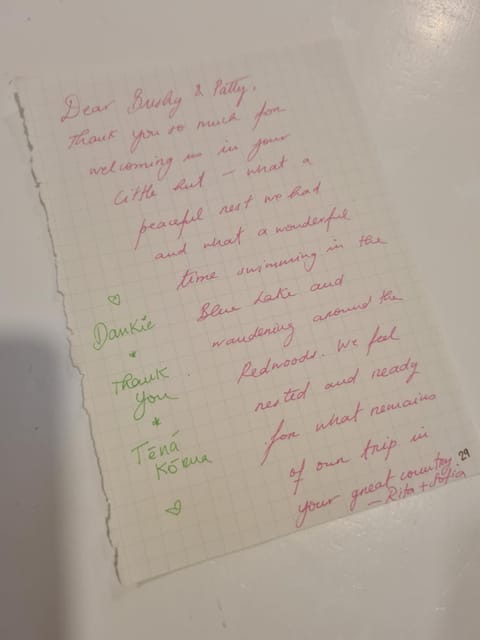 Dear Bushy & Patty,
Thank you so much for
welcoming us in your
little hut – what a
peaceful rest we had
and what a wonderful
time swimming in the
Blue Lake and
wandering around the
Redwoods. We feel
rested and ready
for what remains
of our trip in
your great country.
– Rita + Sofia
29
Dankie
*
Thank
you
*
Tēnā
Kōrua